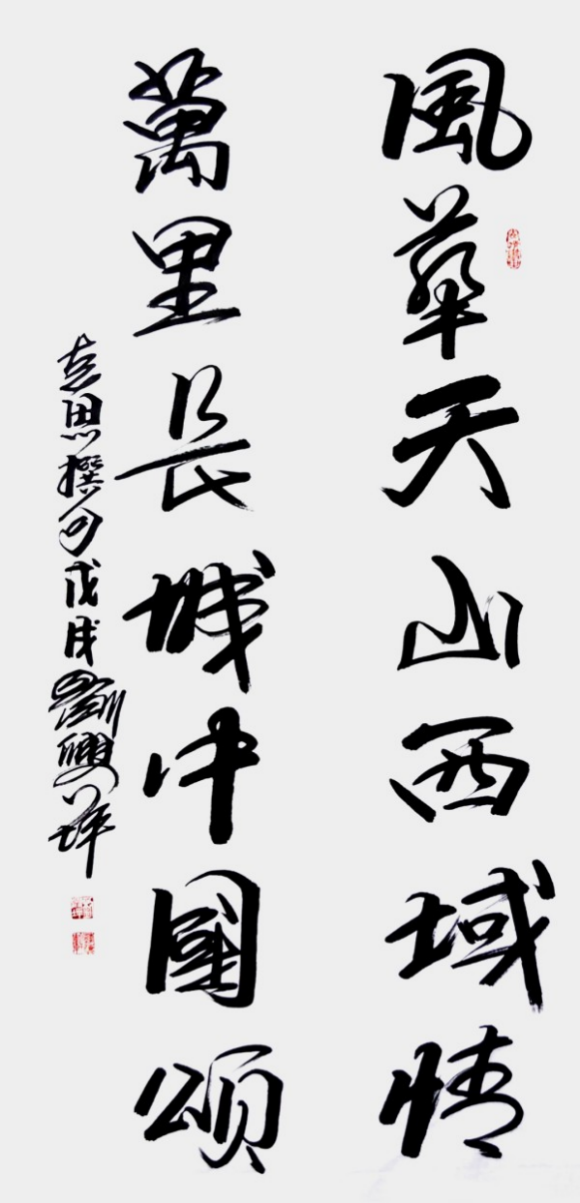 風華天山西域情
萬里長城中國頌
克思撰句戊戌劉興祥